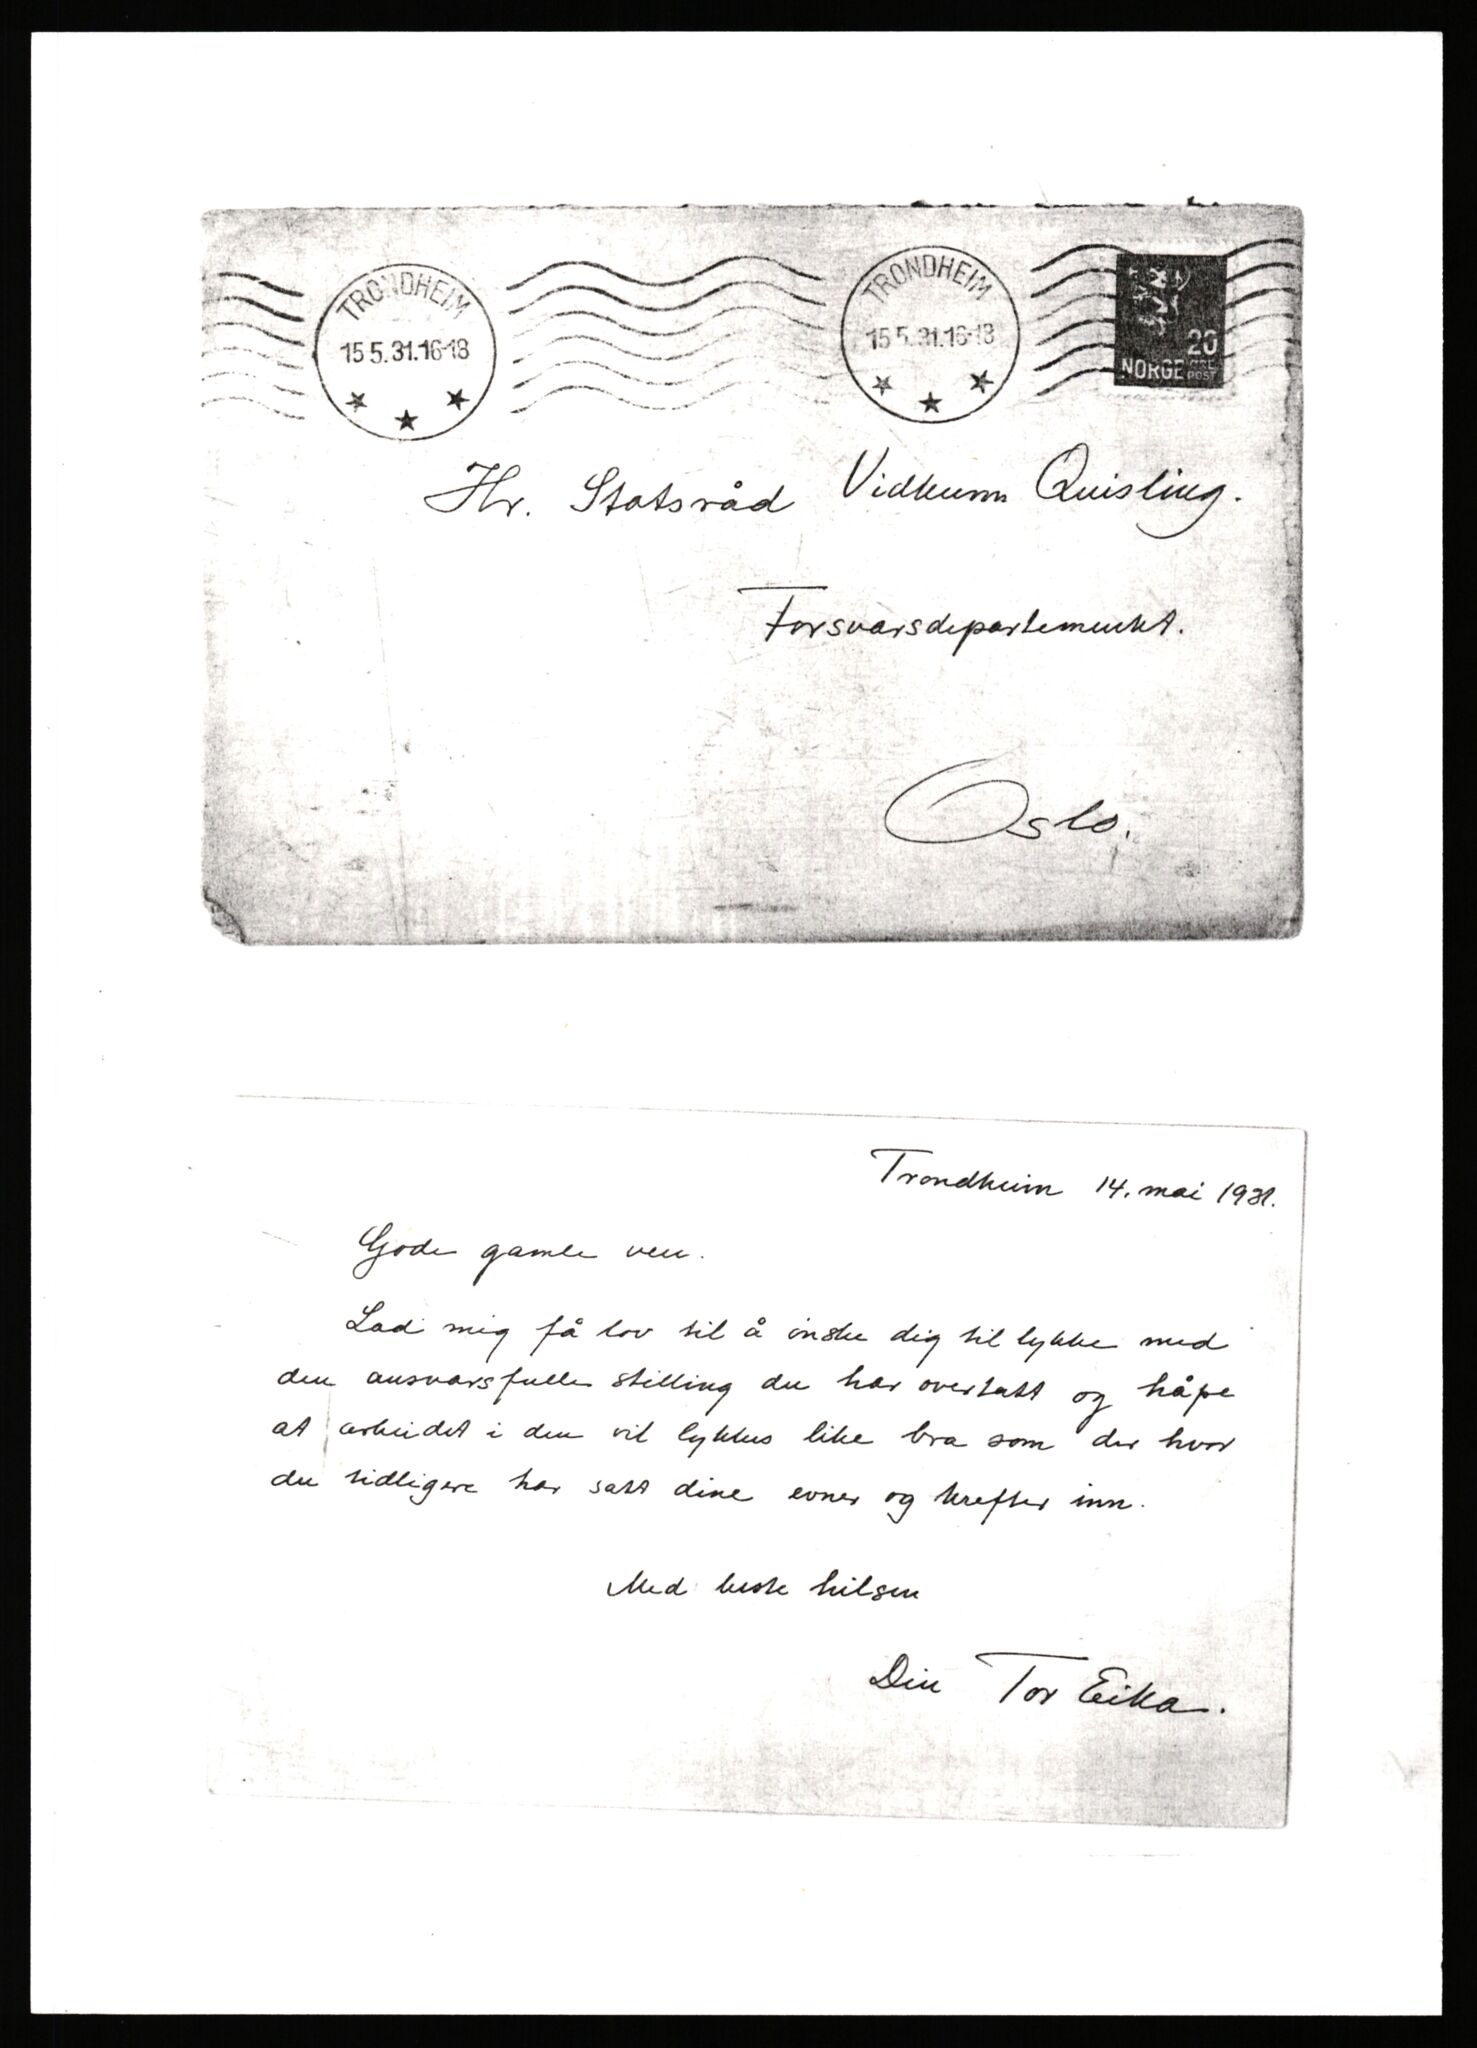 TRONDHEIM
15 5.31.16-18
TRONDHEIM
15 5.31.16-18
20
NORGE ØRE
POST
Hr. Statsråd Vidkunn Quisling.
Forsvarsdepartementet.
Oslo.
Trondheim 14. mai 1931.
Gode gamle ven.
Lad mig få lov til å ønske dig til lykke med
den ansvarsfulle stilling du har overtatt og håpe
at arbeidet i den vil lykkes like bra som der hvor
du tidligere har satt dine evner og krefter inn.
Med beste hilsen
Din Tor Eika.